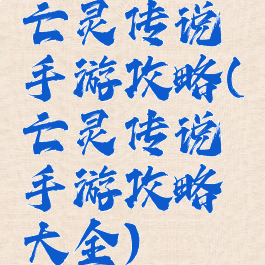 亡灵传说
手游攻略(
亡灵传说
手游攻略
大全)